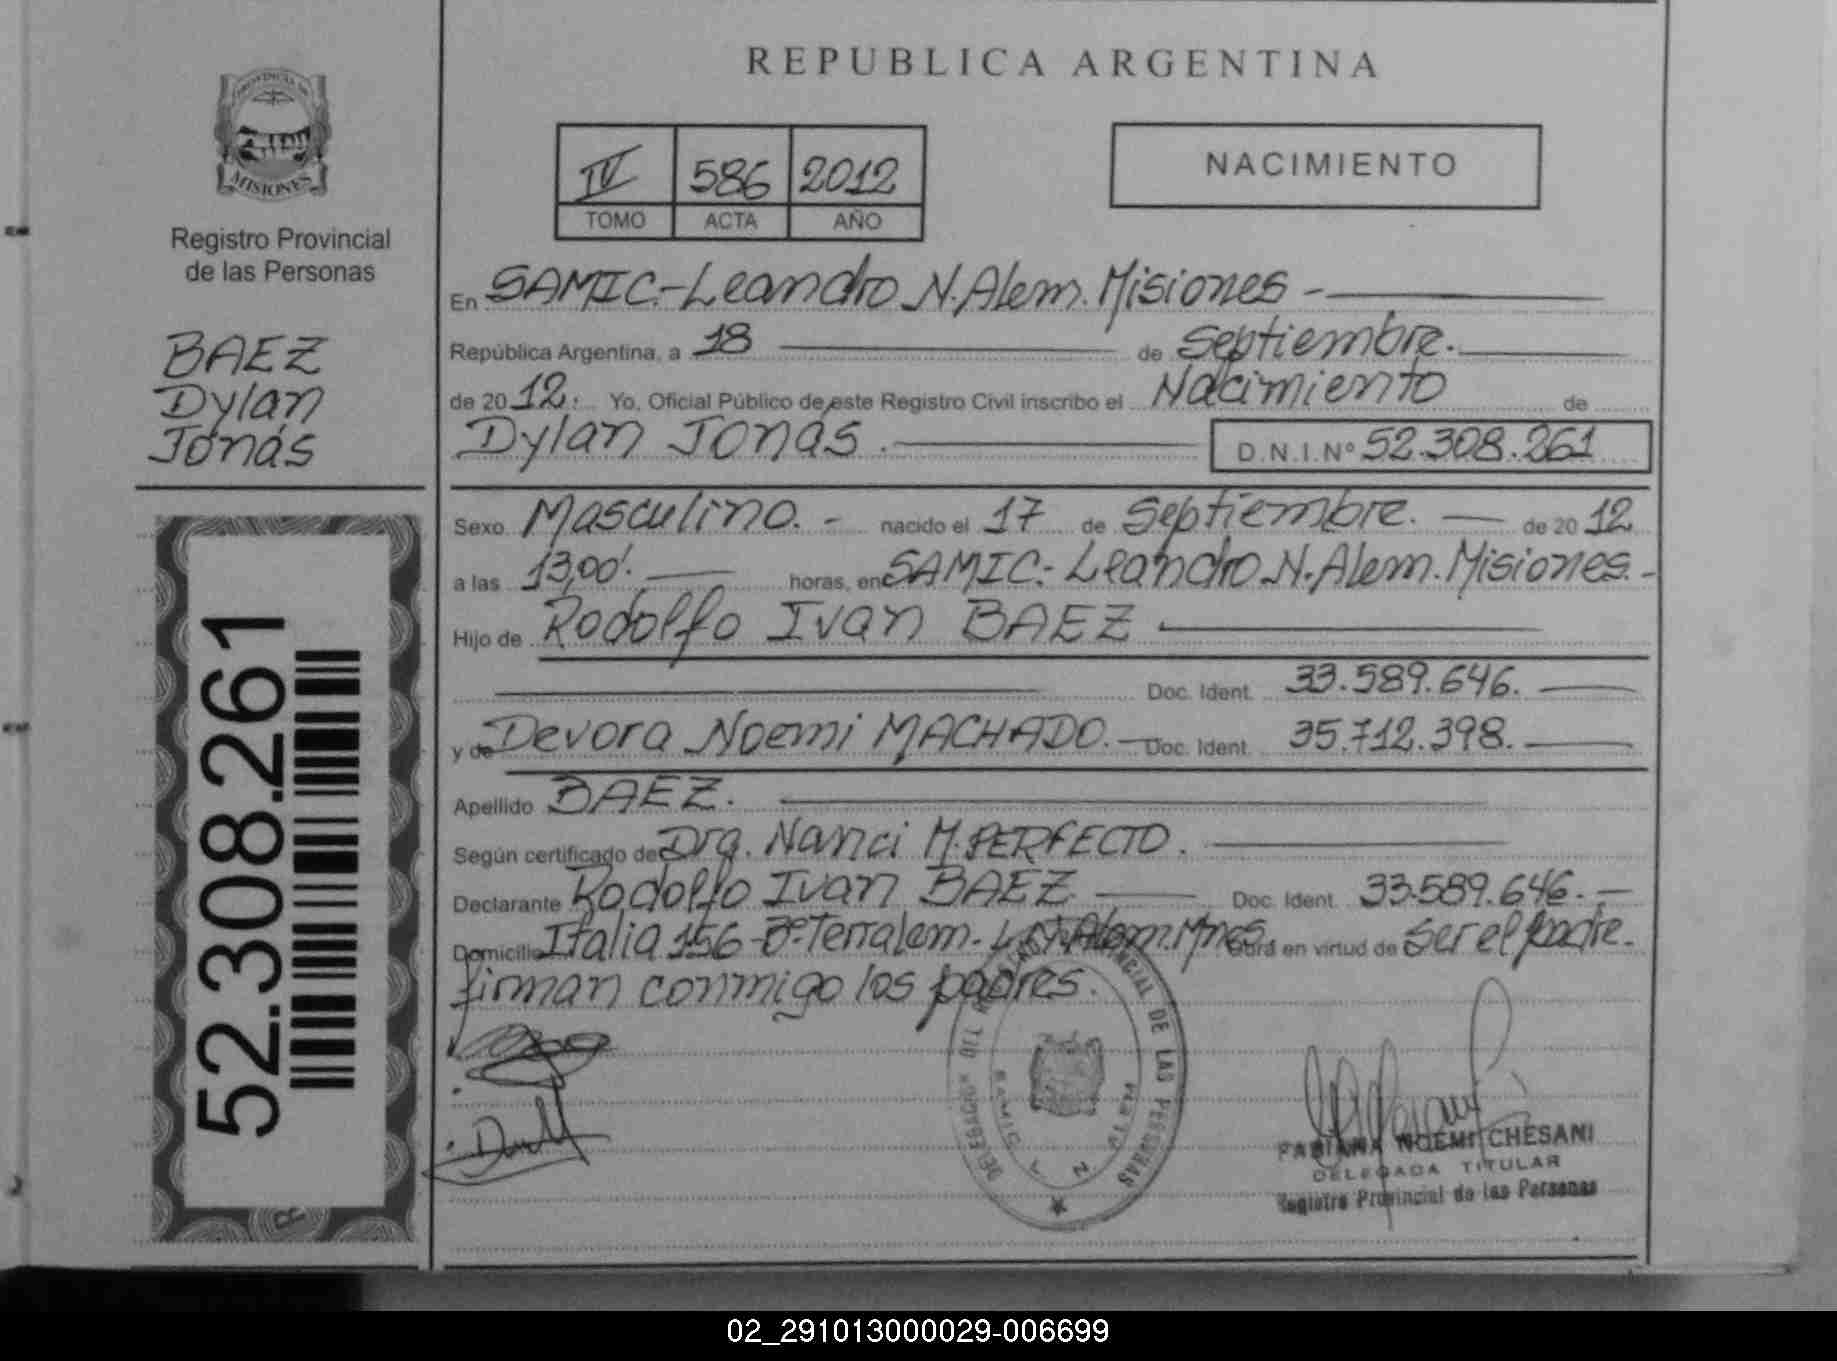 PROVINCIA DE
MISIONES
Registro Provincial
de las Personas
BAEZ
Dylan
Jonás
52.308.261
REPUBLICA ARGENTINA
IV 586 2012
TOMO ACTA AÑO
NACIMIENTO
En SAMIC.-Leandro N. Alem. Misiones -
República Argentina, a 18 de Septiembre.
de 2012. Yo, Oficial Público de este Registro Civil inscribo el Nacimiento de
Dylan Jonás. D.N.I.Nº 52.308.261
Sexo Masculino. - nacido el 17 de Septiembre. de 2012
a las 13,00'. horas, en SAMIC.- Leandro N. Alem. Misiones. -
Hijo de Rodolfo Ivan BAEZ
Doc. Ident. 33.589.646.
y de Devora Noemi MACHADO. Doc. Ident. 35.712.398.
Apellido BAEZ.
Según certificado de Dra. Nanci M. PERFECTO.
Declarante Rodolfo Ivan BAEZ Doc. Ident. 33.589.646.
Domicilio Italia 156 - Bº Terralem. L.N. Alem. Mnes. Obra en virtud de Ser el padre.
firman conmigo los padres.
PROVINCIAL DE LAS PERSONAS
SAMIC
FABIANA NOEMI CHESANI
DELEGADA TITULAR
Registro Provincial de las Personas
02_291013000029-006699